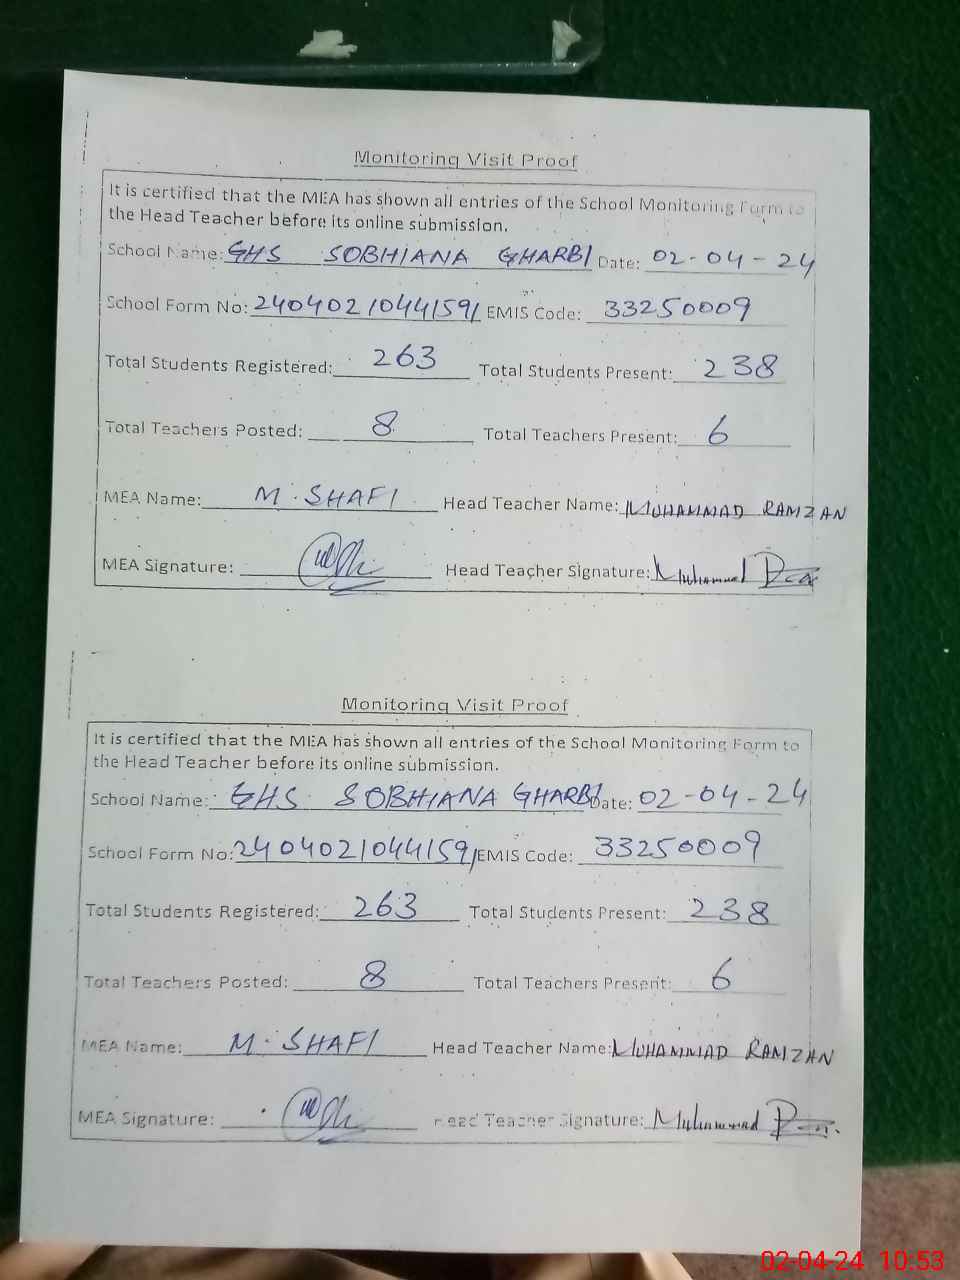 Monitoring Visit Proof
It is certified that the MEA has shown all entries of the School Monitoring Form to
the Head Teacher before its online submission.
School Name: GHS SOBHIANA GHARBI Date: 02-04-24
School Form No: 24040210441591 EMIS Code: 33250009
Total Students Registered: 263 Total Students Present: 238
Total Teachers Posted: 8 Total Teachers Present: 6
MEA Name: M. SHAFI Head Teacher Name: MUHAMMAD RAMZAN
MEA Signature: Head Teacher Signature: Muhammad
Monitoring Visit Proof
It is certified that the MEA has shown all entries of the School Monitoring Form to
the Head Teacher before its online submission.
School Name: GHS SOBHIANA GHARBI Date: 02-04-24
School Form No: 24040210441591 EMIS Code: 33250009
Total Students Registered: 263 Total Students Present: 238
Total Teachers Posted: 8 Total Teachers Present: 6
MEA Name: M. SHAFI Head Teacher Name: MUHAMMAD RAMZAN
MEA Signature: Head Teacher Signature: Muhammad
02-04-24 10:53